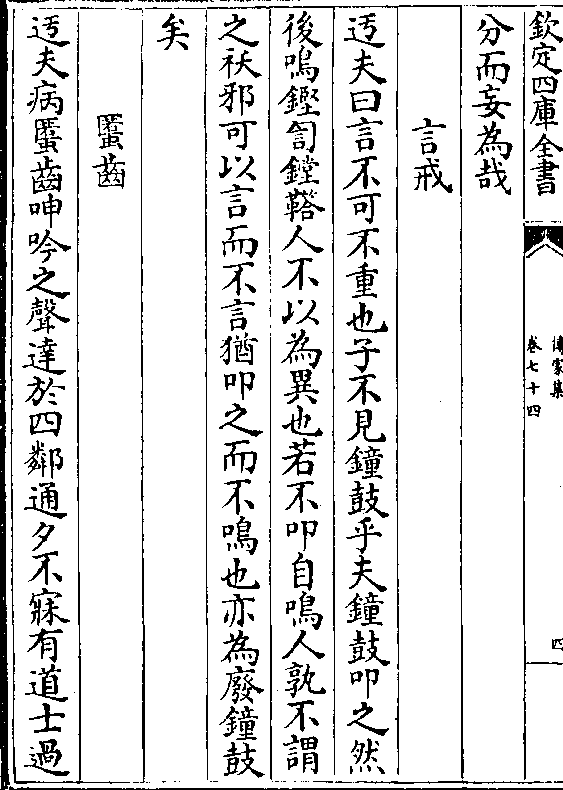 欽定四庫全書
傳家集
卷七十四
四
分而妄為哉
言戒
迃夫曰言不可不重也子不見鐘鼓乎夫鐘鼓叩之然
後鳴鏗訇鏜鞳人不以為異也若不叩自鳴人孰不謂
之祅邪可以言而不言猶叩之而不鳴也亦為廢鐘鼓
矣
䘌齒
迃夫病䘌齒呻吟之聲達於四鄰通夕不寐有道士過